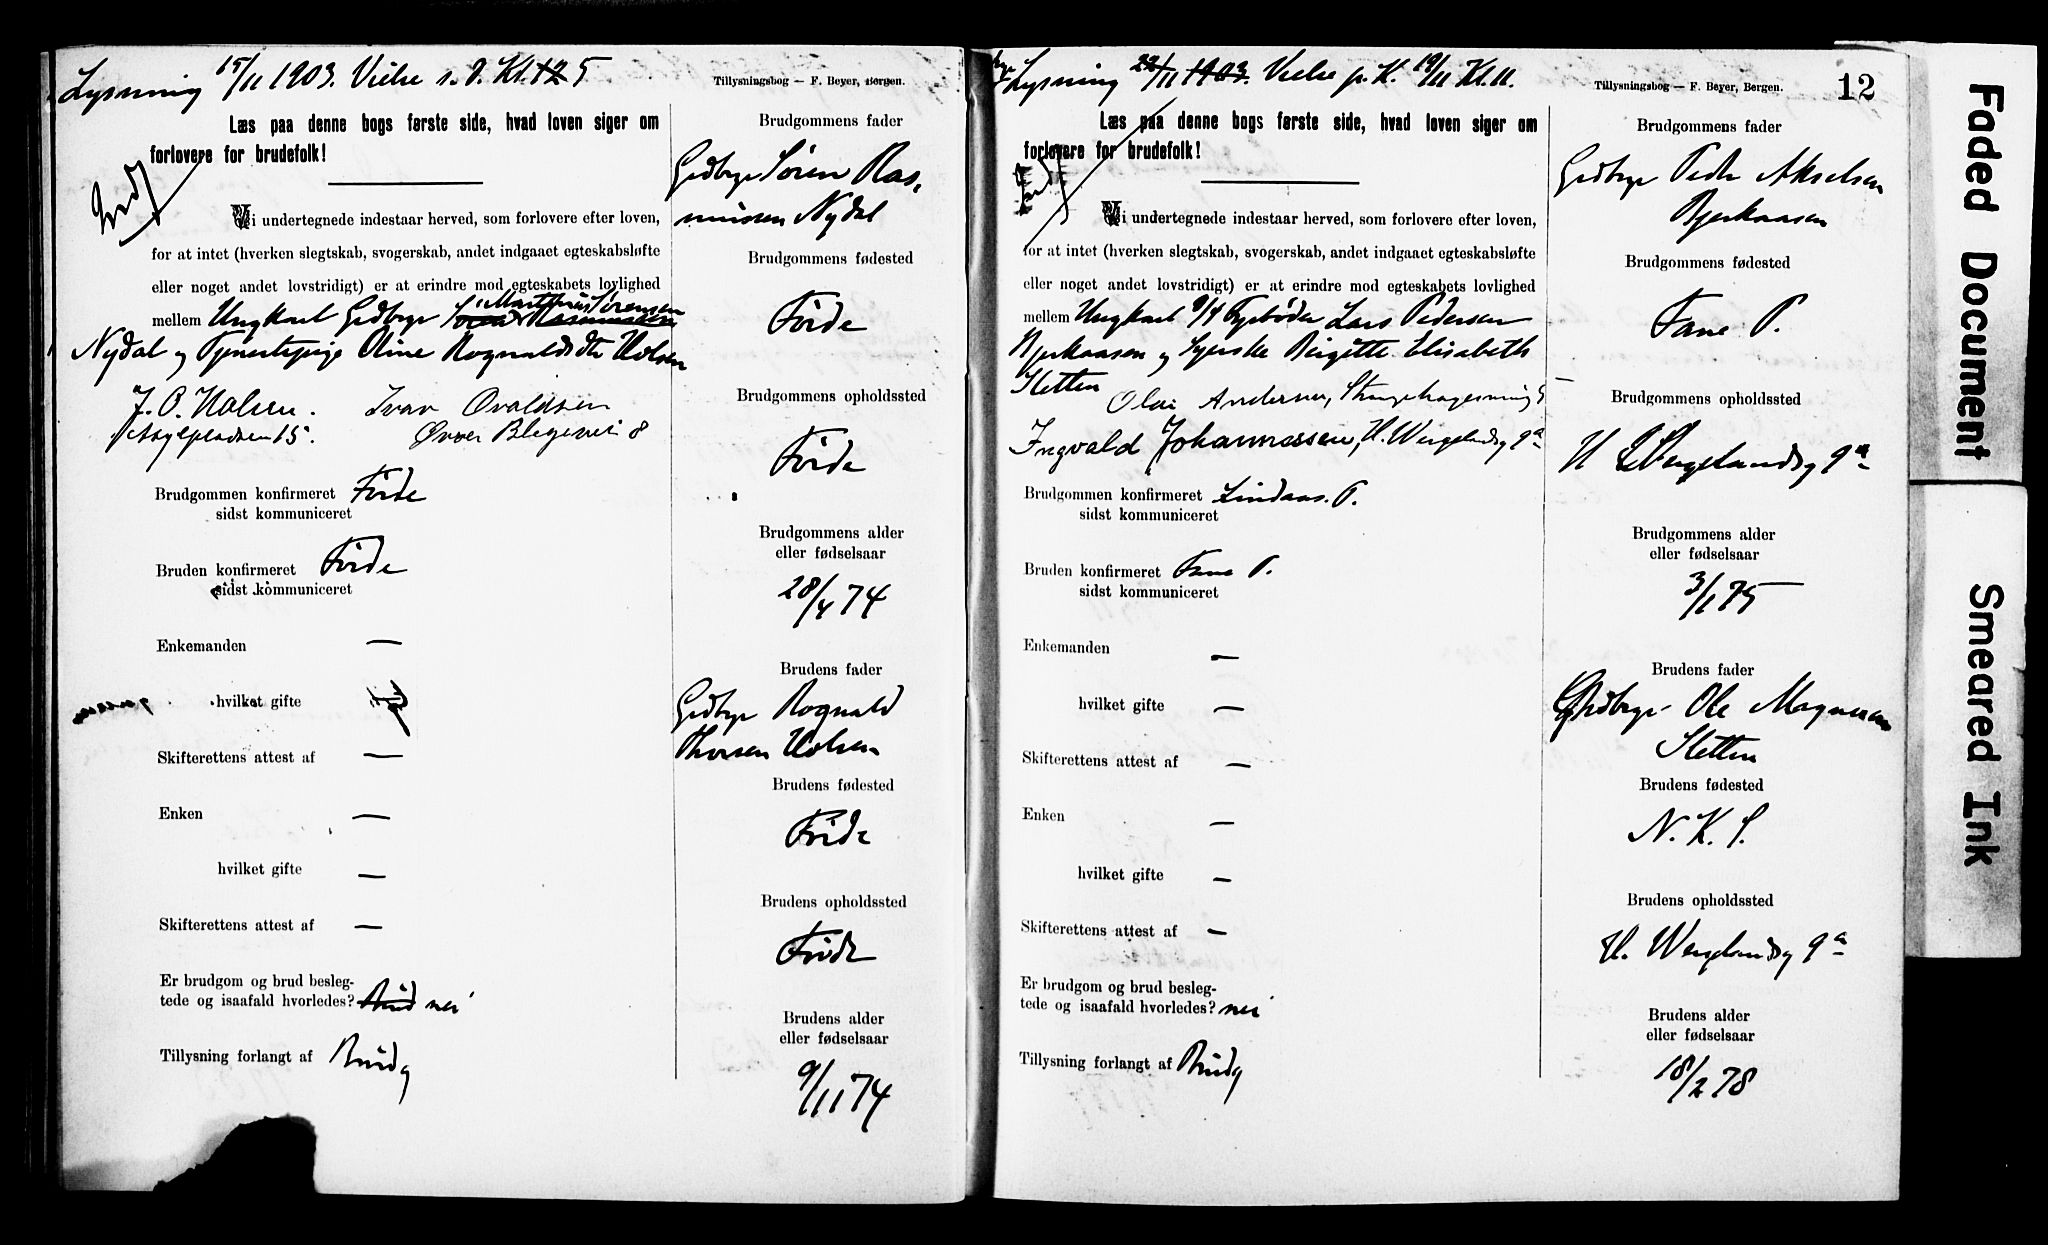 Lysning 15/11 1903. Vielse s. D. Kl. 12 5
Tillysningsbog — F. Beyer, Bergen.
Læs paa denne bogs første side, hvad loven siger om
forlovere for brudefolk!
Vi undertegnede indestaar herved, som forlovere efter loven,
for at intet (hverken slegtskab, svogerskab, andet indgaaet egteskabsløfte
eller noget andet lovstridigt) er at erindre mod egteskabets lovlighed
Martinus Sørensen
mellem Ungkarl Gdbrgr Søren Rasmussen
Nydal og Tjenestepige Oline Rognaldsdtr Holsen
J. O. Holsen. Ivar Osvaldsen
Asylpladsen 15. Øvre Blegevei 8
Brudgommen konfirmeret Førde
sidst kommuniceret
Bruden konfirmeret Førde
sidst kommuniceret
Enkemanden —
hvilket gifte
Skifterettens attest af —
Enken —
hvilket gifte —
Skifterettens attest af —
Er brudgom og brud besleg-
tede og isaafald hvorledes? Brud nei
Tillysning forlangt af Brudg
Brudgommens fader
Gedbrgr Søren Ras-
mussen Nydal
Brudgommens fødested
Førde
Brudgommens opholdssted
Førde
Brudgommens alder
eller fødselsaar
28/4 74
Brudens fader
Gedbrgr Rognald
Thorsen Holsen
Brudens fødested
Førde
Brudens opholdssted
Førde
Brudens alder
eller fødselsaar
9/11 74
Lysning 22/11 1903. Vielse p. K. 19/11 Kl. 11.
Tillysningsbog — F. Beyer, Bergen.
12
Læs paa denne bogs første side, hvad loven siger om
forlovere for brudefolk!
Vi undertegnede indestaar herved, som forlovere efter loven,
for at intet (hverken slegtskab, svogerskab, andet indgaaet egteskabsløfte
eller noget andet lovstridigt) er at erindre mod egteskabets lovlighed
mellem Ungkarl Fyrbøder Lars Pedersen
Bjerkaasen og Syerske Birgitte Elisabeth
Sletten
Olai Andersen, Strangehagesmug 5
Ingvald Johannessen, H. Wergelandsg 9a
Brudgommen konfirmeret Lindaas. P.
sidst kommuniceret
Bruden konfirmeret Fane P.
sidst kommuniceret
Enkemanden —
hvilket gifte —
Skifterettens attest af —
Enken —
hvilket gifte —
Skifterettens attest af —
Er brudgom og brud besleg-
tede og isaafald hvorledes? nei
Tillysning forlangt af Brudg
Brudgommens fader
Gedbrgr Peder Akselsen
Bjerkaasen
Brudgommens fødested
Fane P.
Brudgommens opholdssted
H Wergelandsg 9a
Brudgommens alder
eller fødselsaar
3/1 75
Brudens fader
Gedbrgr Ole Magnesen
Sletten
Brudens fødested
N. K. S.
Brudens opholdssted
H. Wergelandsg 9a
Brudens alder
eller fødselsaar
18/2 78
Faded Document
Smeared Ink